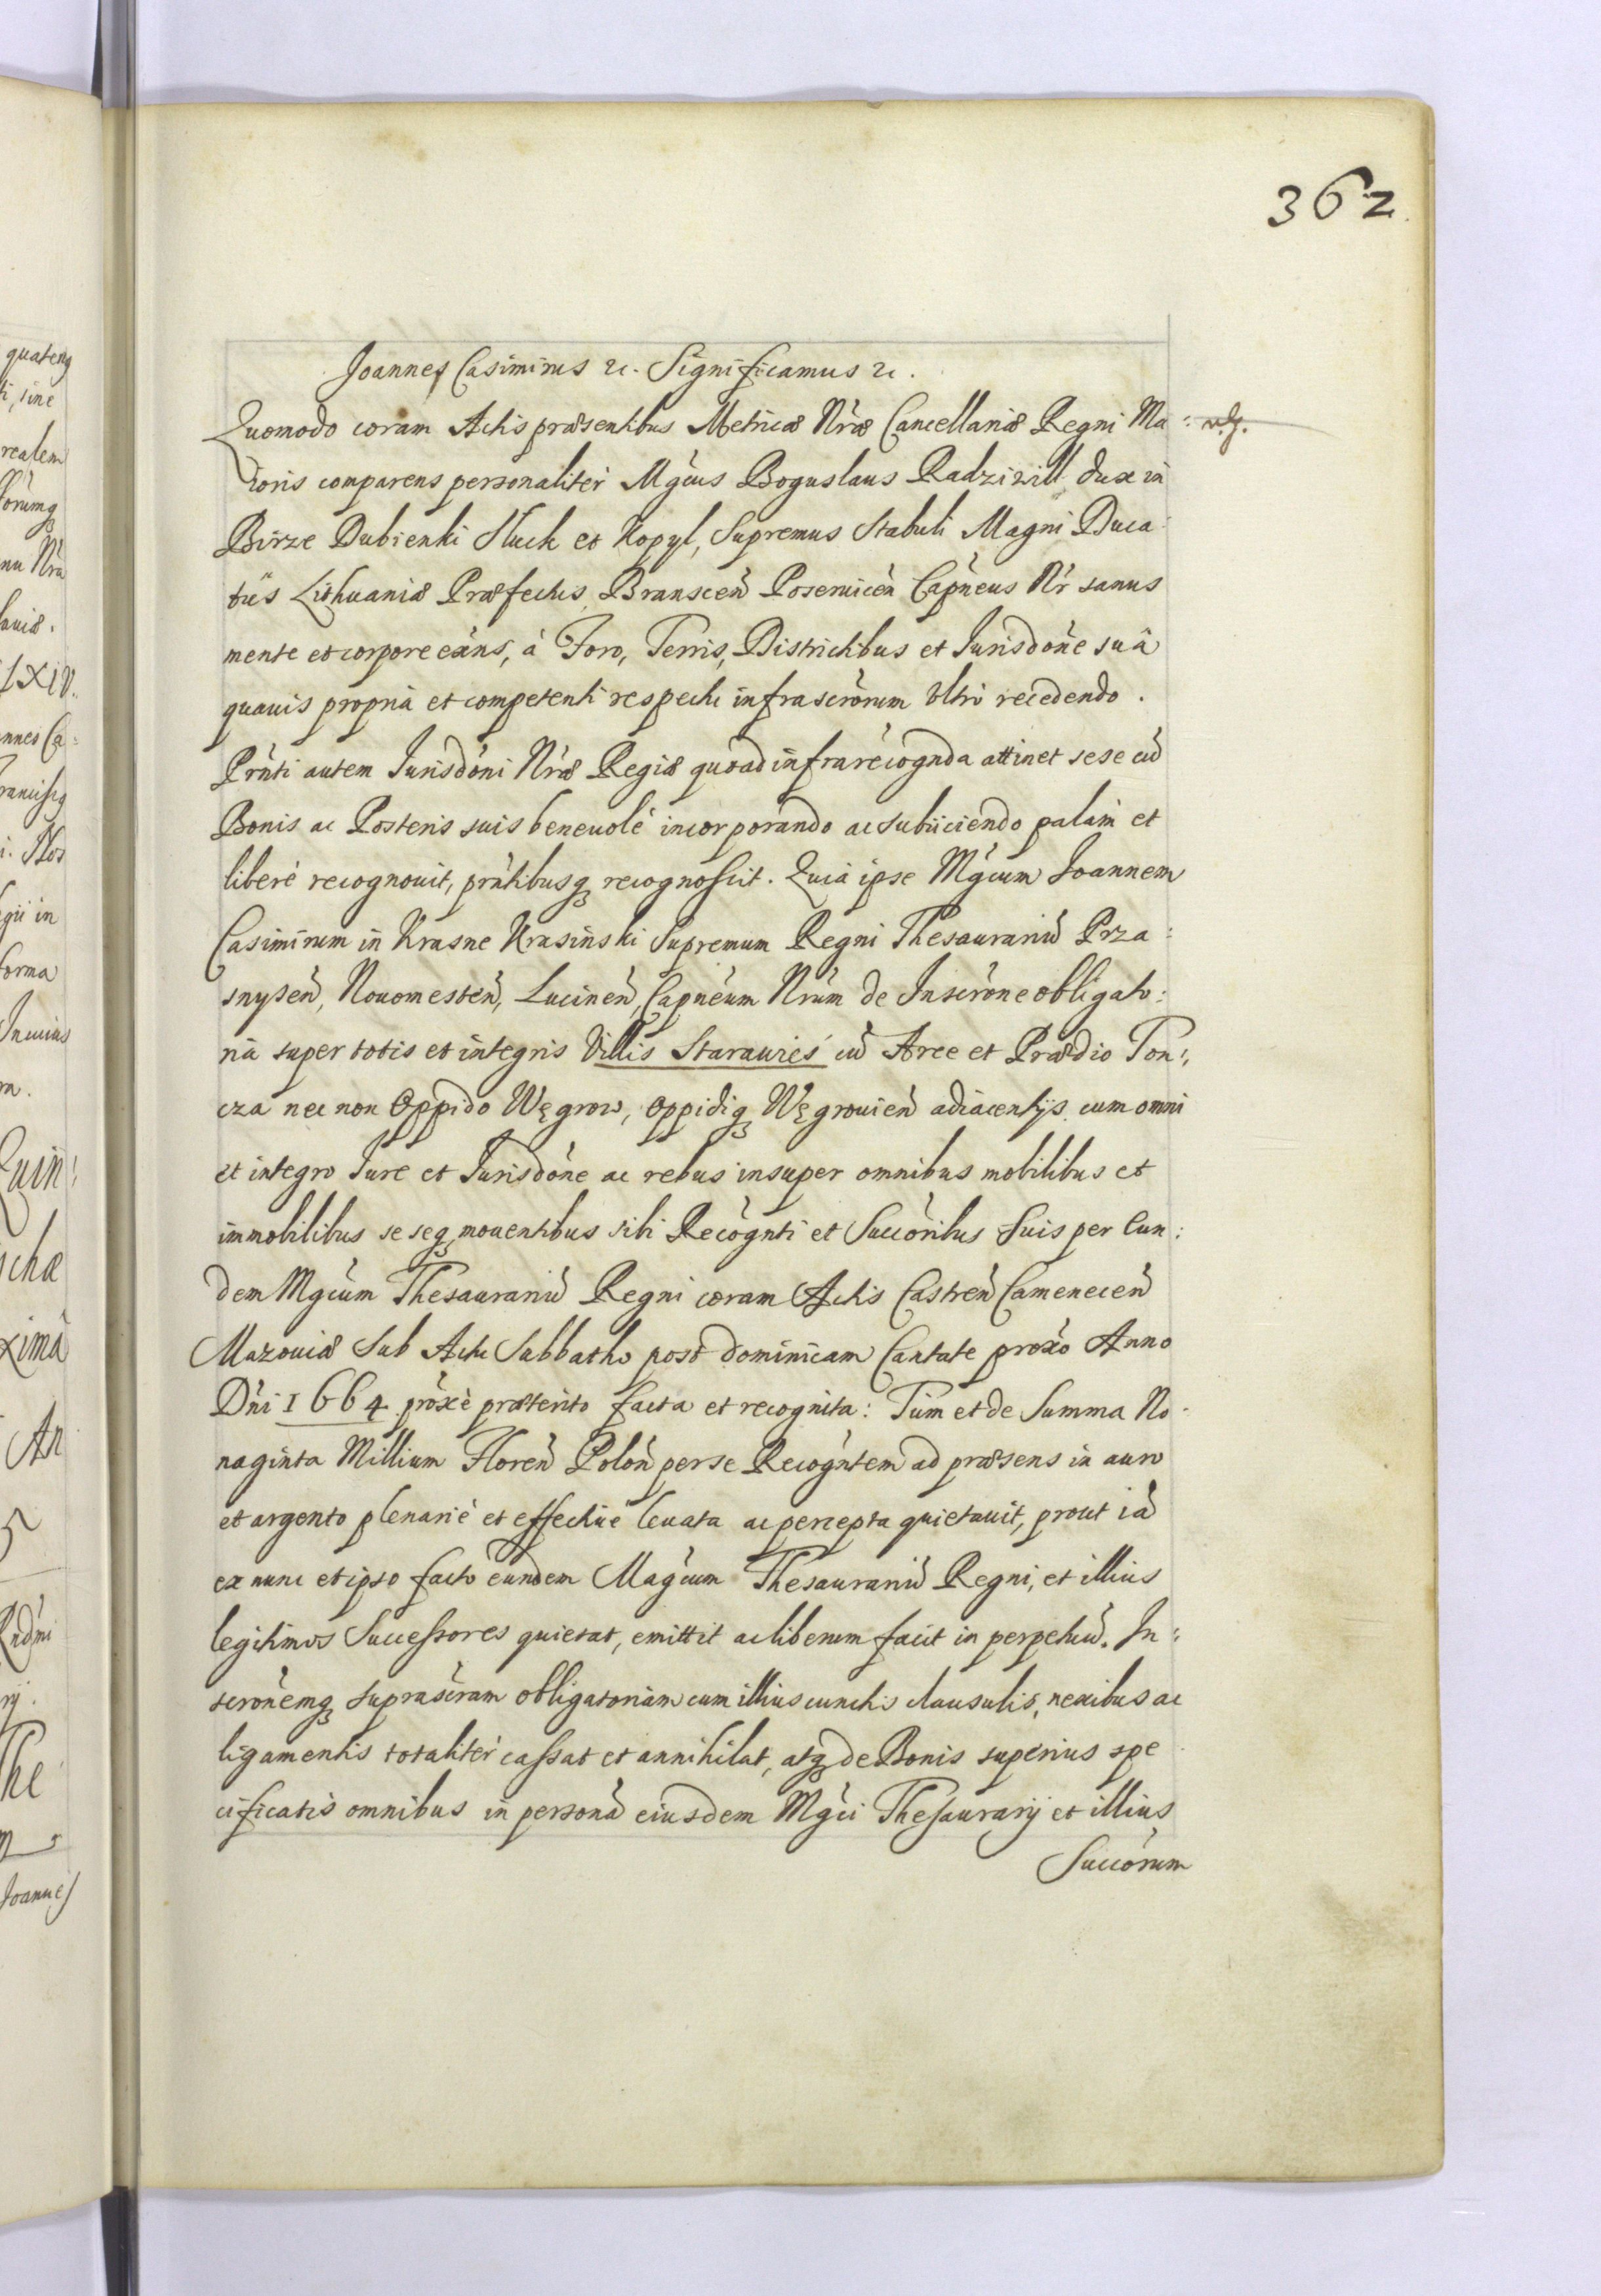 362
Joannes Casimirus &c. Significamus &c.
Quomodo coram Actis præsentibus Metricæ Nr̀æ Cancellariæ Regni Ma:
ioris comparens personaliter Mgc̀us Boguslaus Radziwill dux in
Birze Dubienki Sluck et Kopyl, Supremus Stabuli Magni Duca
tus Lithuaniæ Præfectus, Branscen̄ Poseruicen̄ Capn̄eus Nr̀ sanus
mente et corpore exn̄s, à Foro, Terris, Districtibus et Jurisdon̄e suâ
quauis propria et competenti respectu infrascror̄um Vltro recedendo.
Prn̄ti autem Jurisdon̄i Nr̀æ Regiæ quoad infrarecogn̄da attinet sese cū
Bonis ac Posteris suis beneuolè incorporando ac subiiciendo palam et
liberè recognouit, prn̄tibusq3 recognoscit. Quia ipse Mgc̀um Joannem
Casimirum in Krasne Krasinski Supremum Regni Thesaurariū Prza:
snysen̄, Nouomesten̄, Lucinen̄, Capn̄eum Nrūm de Inscron̄e obligato:
ria super totis et integris Villis Starawieś cū Arce et Prædio Ton:
cza nec non Oppido Węgrow, Oppidiq3 Węgrouien̄ adiacentijs cum omni
et integro Jure et Jurisdon̄e ac rebus insuper omnibus mobilibus et
immobilibus se seq3 mouentibus sibi Recogn̄ti et Succor̄ibus Suis per Eun:
dem Mgc̀um Thesaurariū Regni coram Actis Castren̄ Camenecen̄
Mazouiæ Sub Actu Sabbatho post dominicam Cantate prox̄o Anno
Dn̄i 1664 prox̄è præterito facta et recognita: Tùm et de Summa No
naginta Millium Floren̄ Polon̄ per se Recogn̄tem ad præsens in auro
et argento plenariè et effectiuè leuata ac percepta quietauit, prout iā
ex nunc et ipso facto eundem Magc̀um Thesaurariū Regni, et illius
legitimos Successores quietat, emittit ac liberum facit in perpetuū. In:
scron̄emq3 suprascrām obligatoriam cum illius cunctis clausulis, nexibus ac
ligamentis totaliter cassat et annihilat, atq3 de Bonis superius spe
cificatis omnibus in personā eiusdem Mgc̀i Thesaurarij et illius
Succor̄um